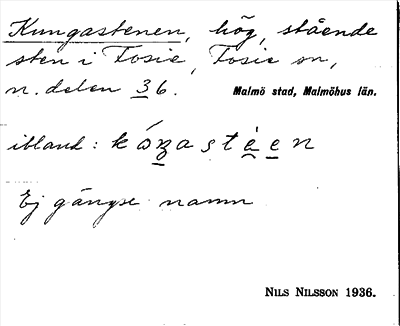 Kungastenen, hög, stående
sten i Tosie, Fosie sn,
n. delen 36.
Malmö stad, Malmöhus län.
ibland:
Ej gängse namn
NILS NILSSON 1936.